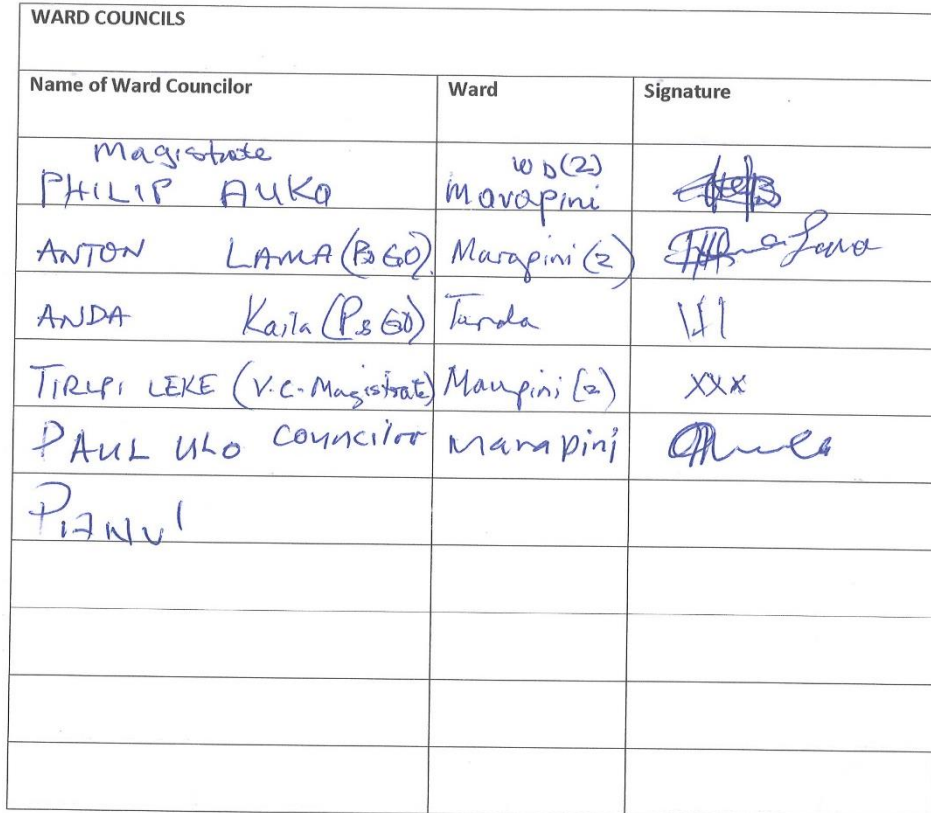 WARD COUNCILS
Name of Ward Councilor Ward Signature
Magistrate WD(2)
PHILIP AUKO Marapini
ANTON LAMA Marapini (2)
ANDA Kaila Tanda
TIRUPI LEKE (V.C-Magistrate) (2) XXX
PAUL ULO councilor Marapini